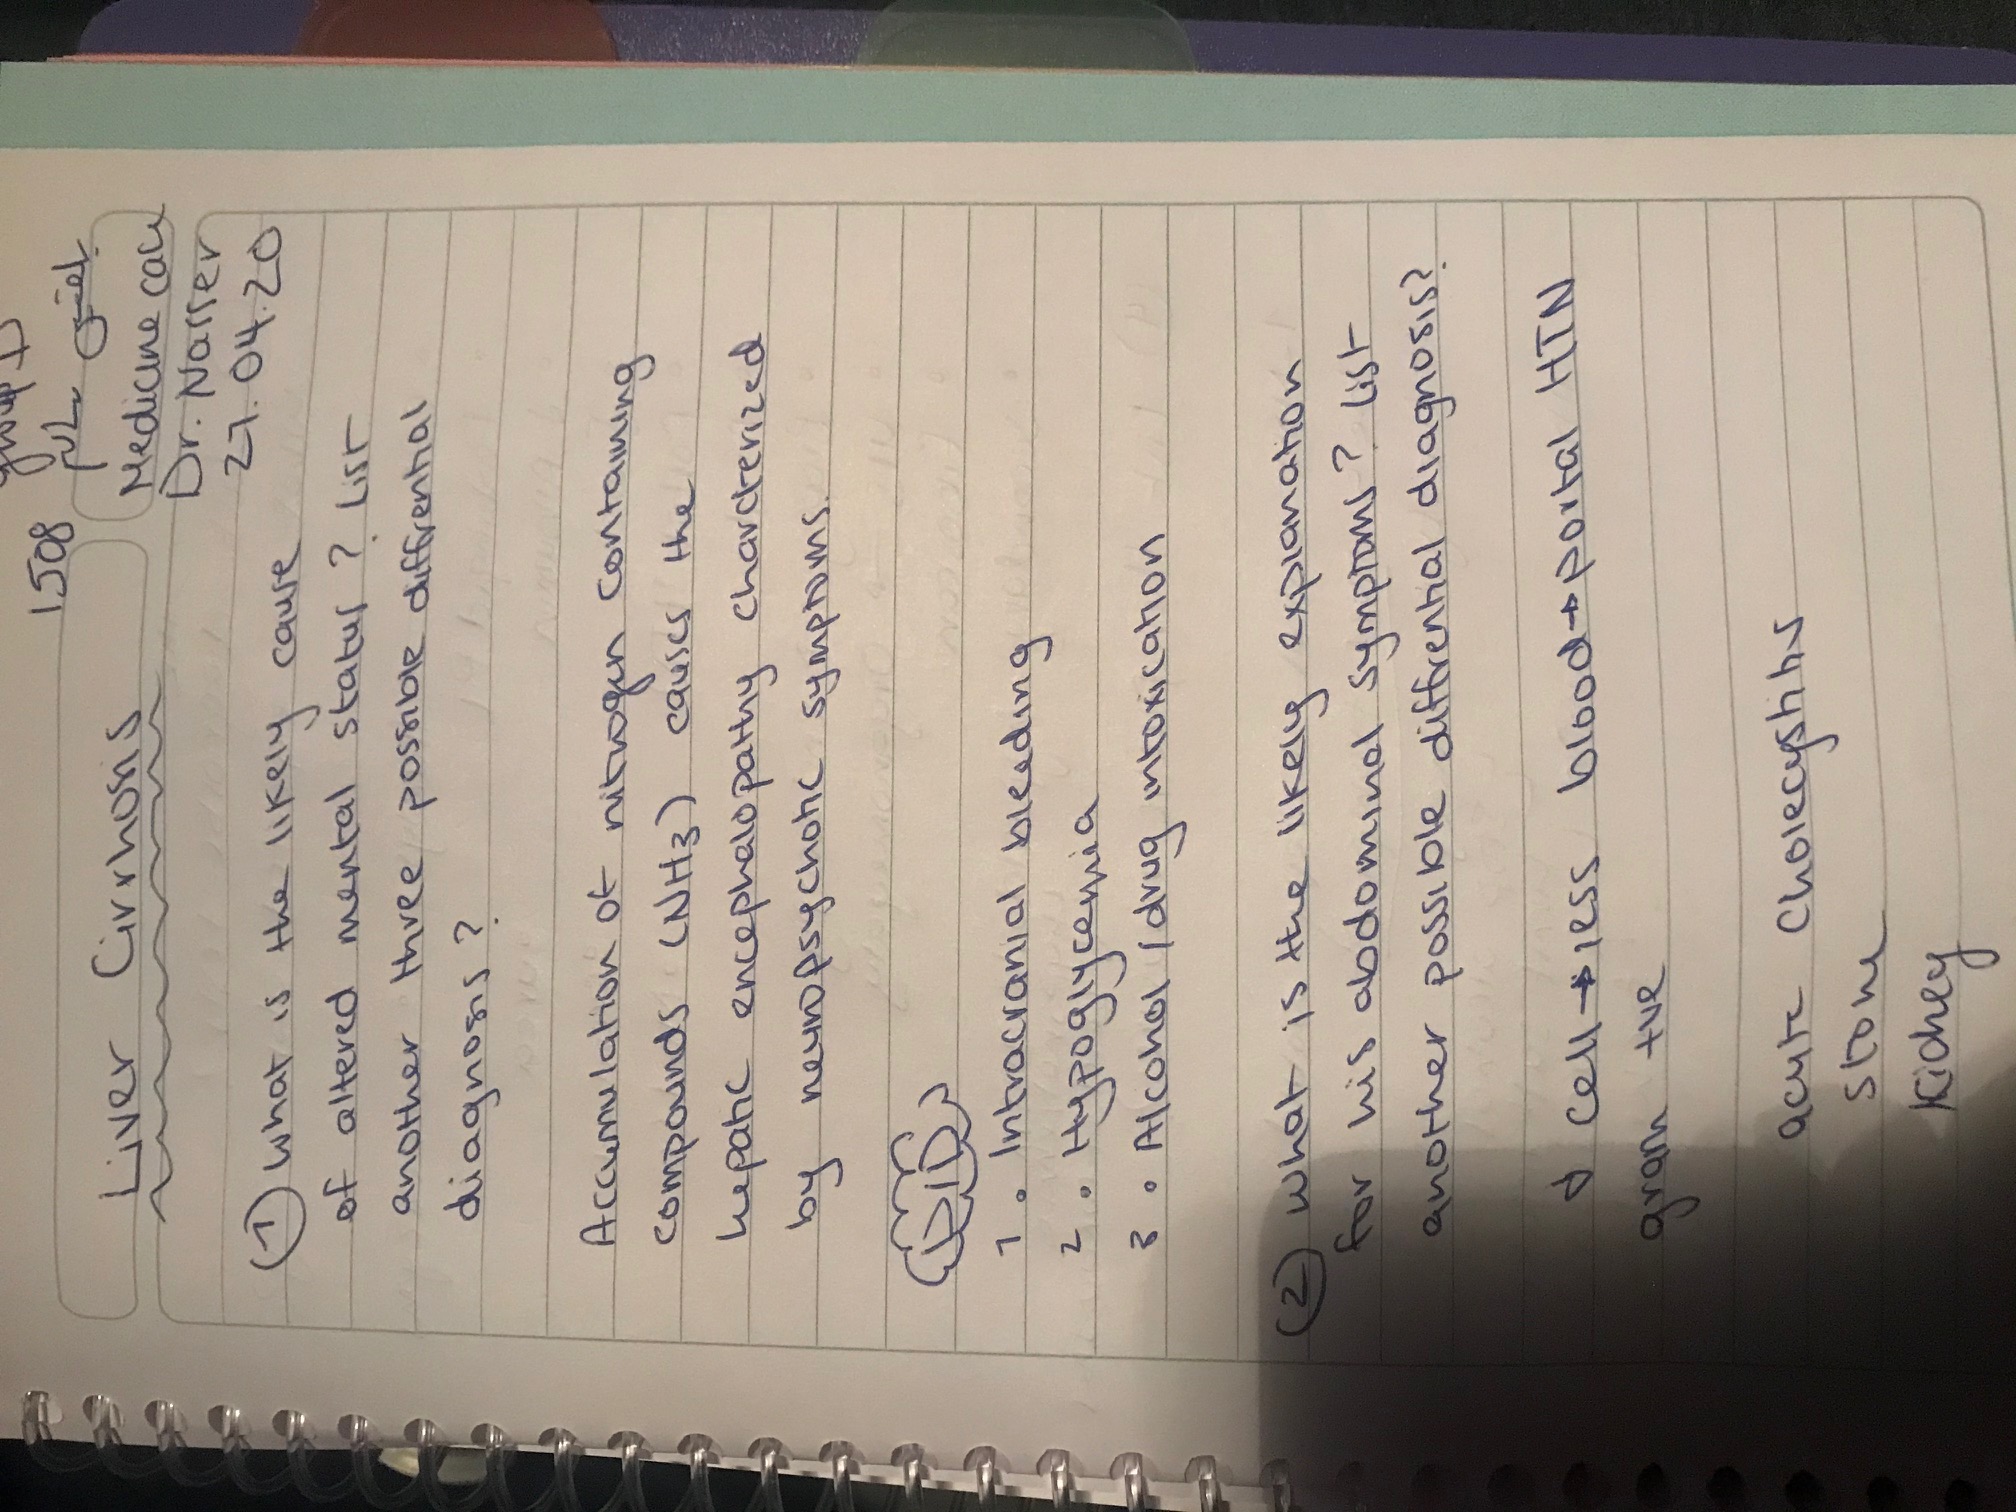 1508
Liver Cirrhosis
Medicine case
Dr. Nasser
27.04.20
① what is the likely cause
of altered mental status? List
another three possible diffrential
diagnosis?
Accumulation of nitrogen containing
compounds (NH3) causes the
hepatic encephalopathy charcterized
by neuropsychotic symptoms.
DD
1. Intracranial bleeding
2. Hypoglycemia
3. Alcohol / drug intoxication
② what is the likely explanation
for his abdominal symptoms? List
another possible diffrential diagnosis?
↓ cell → less blood → portal HTN
gram +ve
acute cholecystitis
stone
Kidney